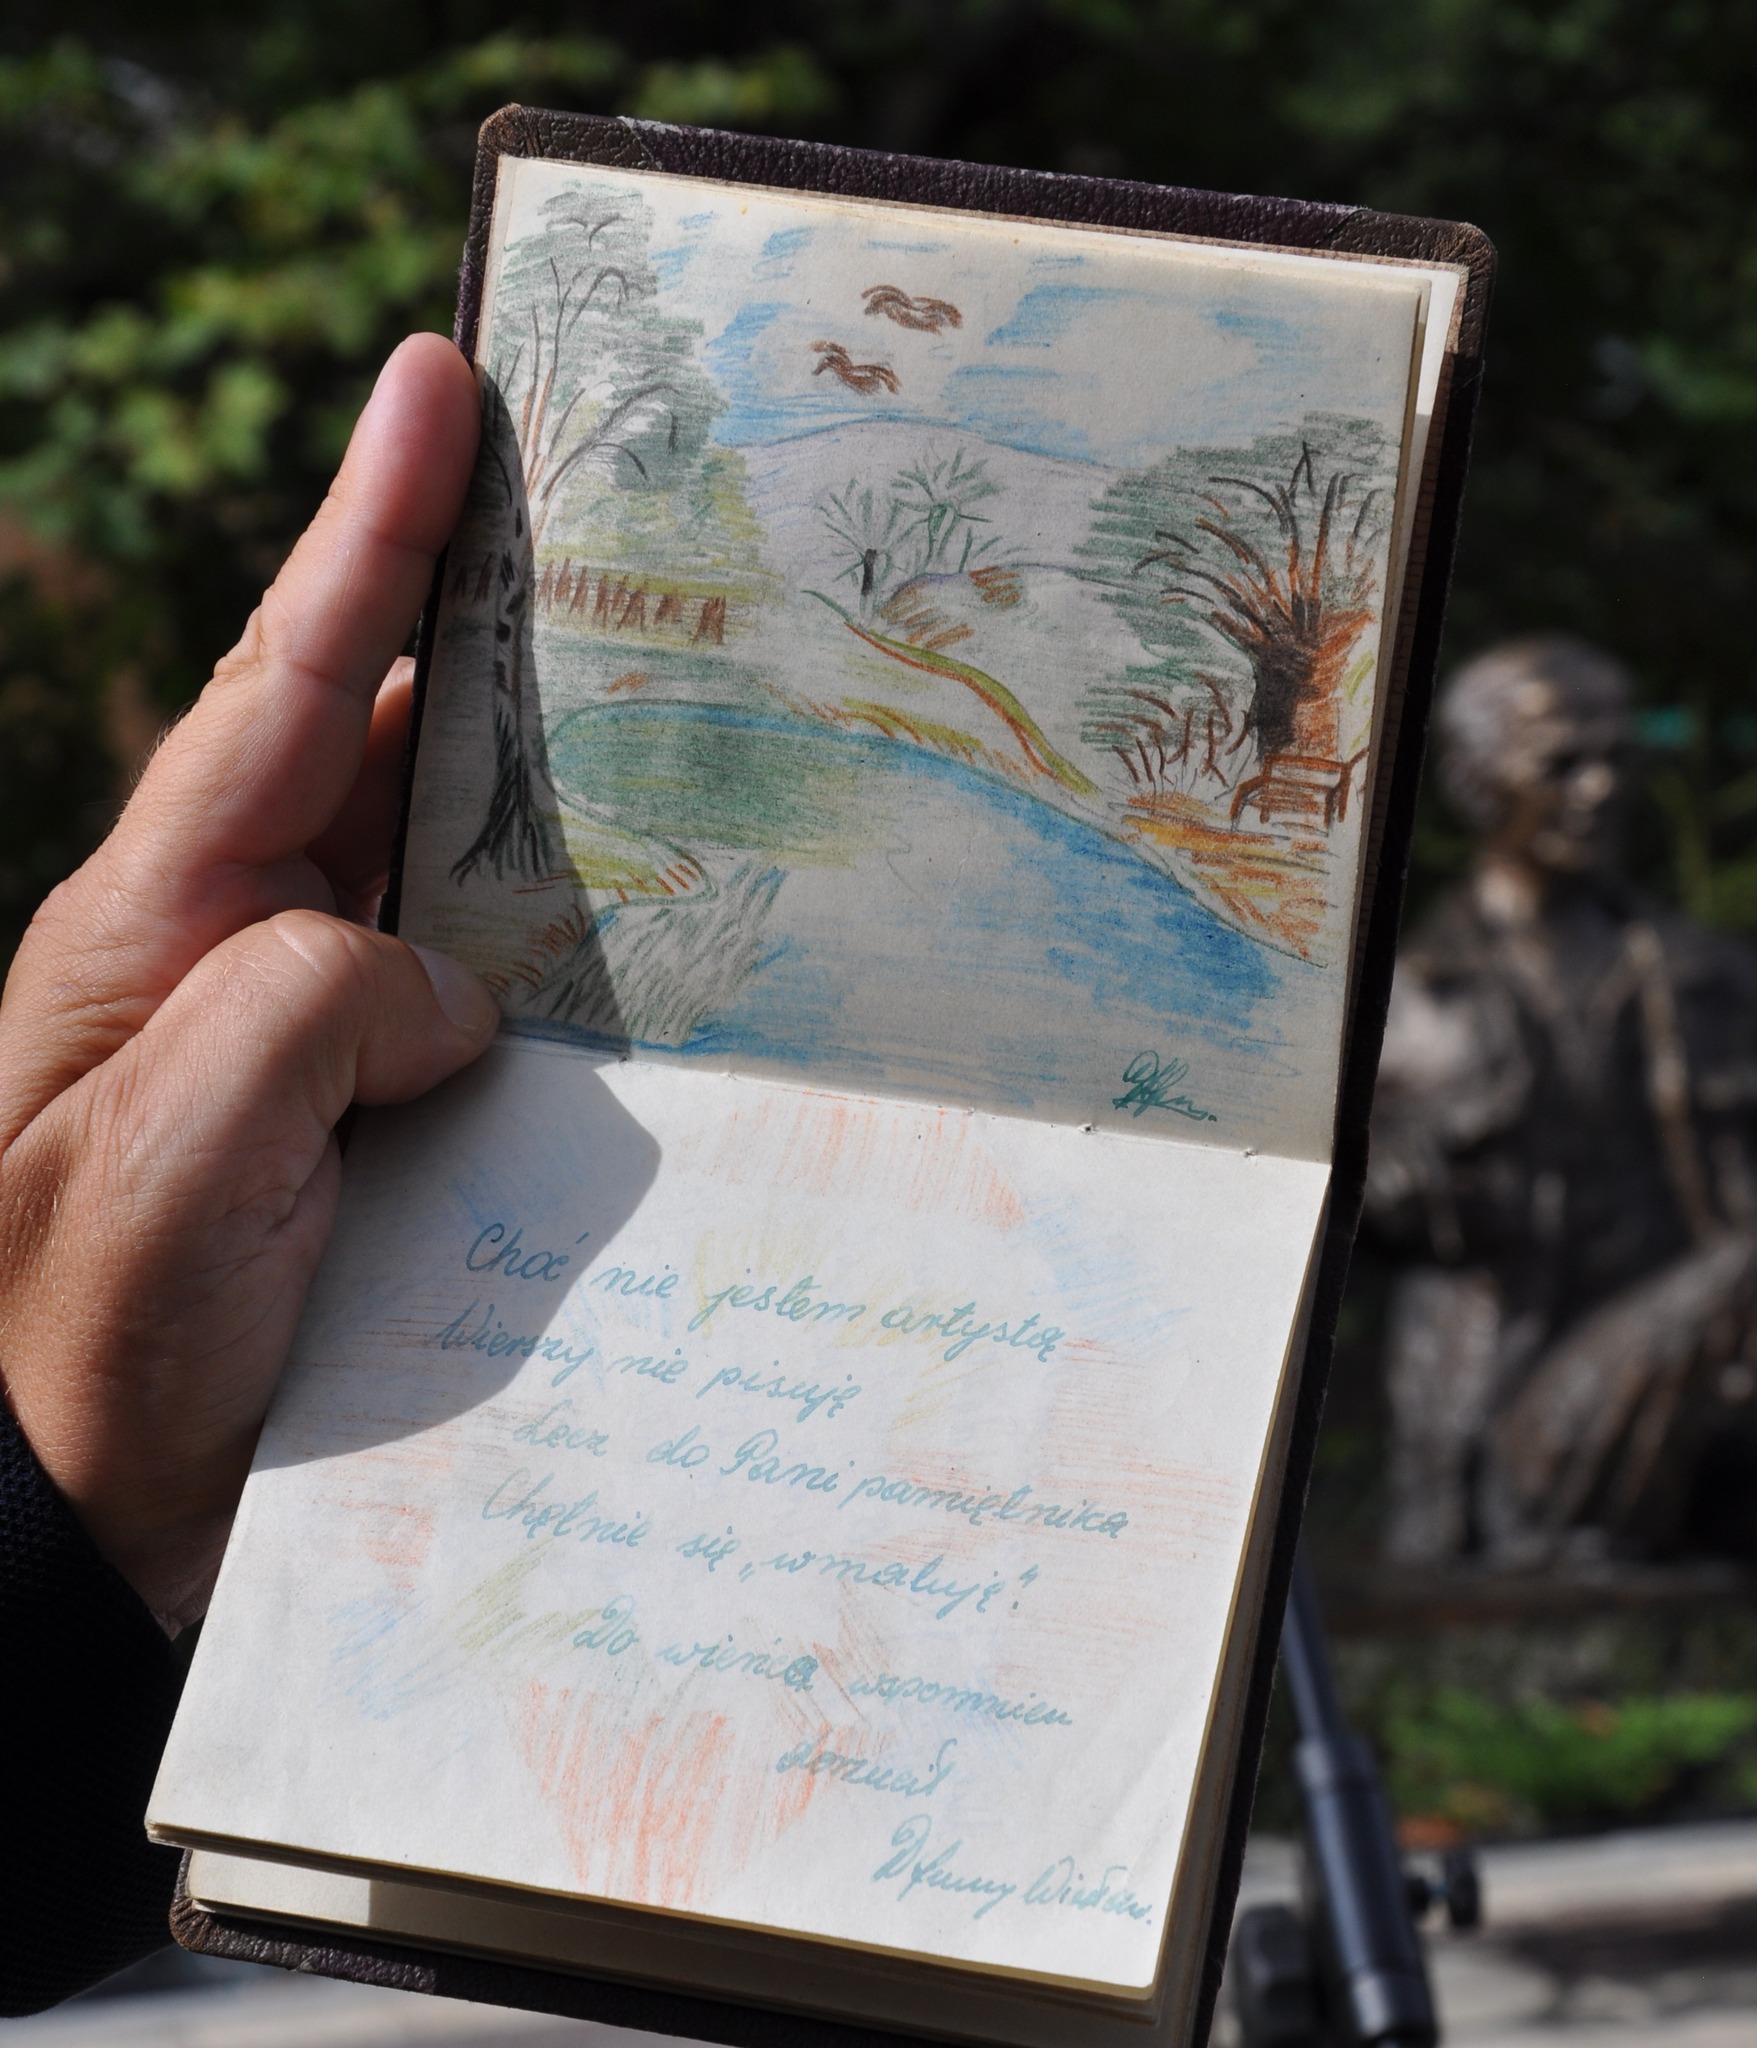 Choć nie jestem artystą
Wierszy nie pisuję
Lecz do Pani pamiętnika
Chętnie się „wmaluję".
Do wieńca wspomnień
dorzucił